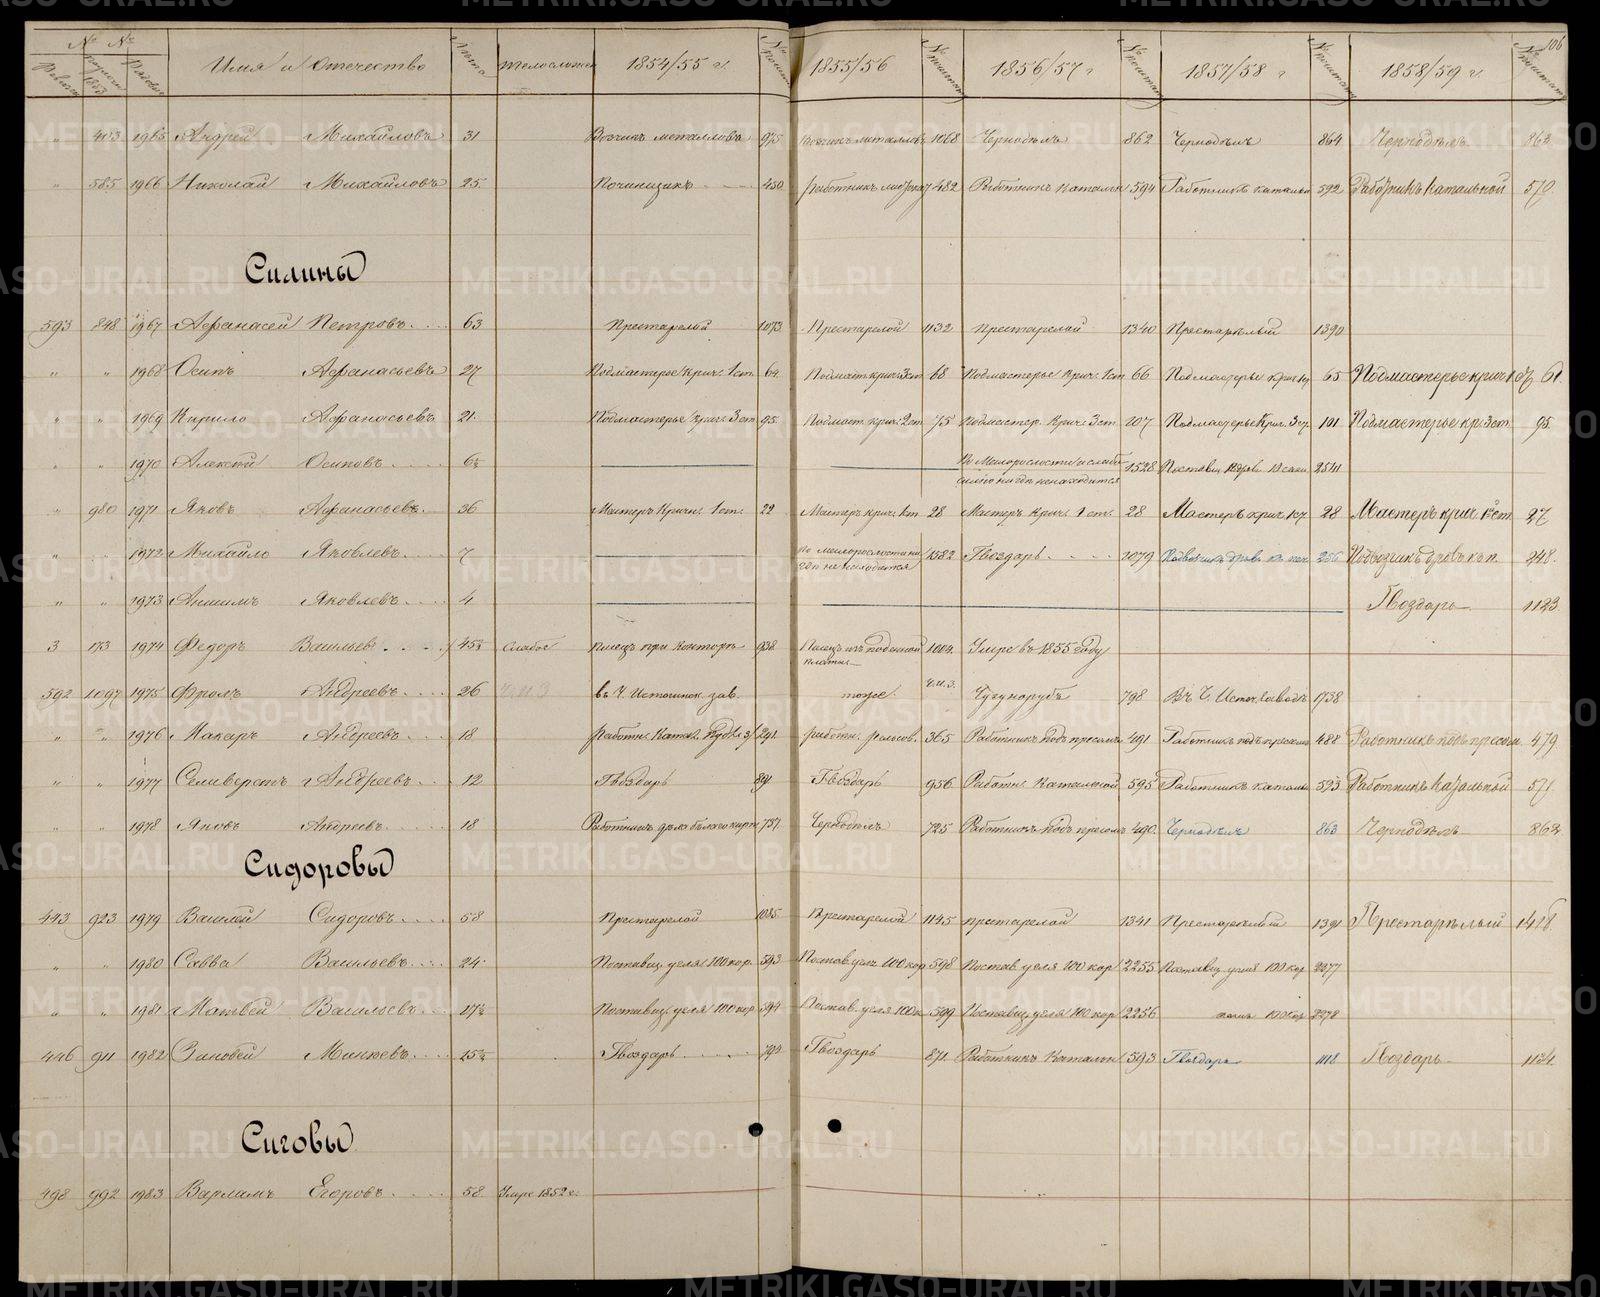 106
№ № Имя и Отчество Лѣта 1854/55 г. 1855/56 1856/57 г 1857/58 г 1858/59 г.
„ 403 1965 Андрей Михайловъ 31 Возчикъ металловъ 975 Возчикъ металловъ 1068 Чернодѣлъ 862 Чернодѣлъ 864 Чернодѣлъ 863
„ 585 1966 Николай Михайловъ 25 Починщикъ 450 482 Работникъ катальн 594 Работникъ катальн 592 Работникъ Катальной 570
Силины
593 848 1967 Афанасей Петровъ 63 Престарелой 1073 Престарелой 1132 Престарелой 1340 Престарѣлый 1390
„ „ 1968 Осипъ Афанасьевъ 27 Подмастерье Крич. 1 ст. 64 Подмаст. крич. 3 ст 68 Подмастерье Крич. 1 ст 66 Подмастерье крич 65 Подмастерье крич 61
„ „ 1969 Кирило Афанасьевъ 21 Подмастерье Крич. 3 ст 95 Подмаст. крич. 2 ст 75 Подмастер. Крич. 3 ст. 107 Подмастерье Крич. 3 ст 101 Подмастерье кр. 3 ст. 95
„ „ 1970 Алексей Осиповъ 6½ По Малорослости и слабосилию нигдѣ не находится 1528 2541
„ 980 1971 Яковъ Афанасьевъ 36 Мастеръ Кричн. 1 ст. 29 Мастеръ крич. 1 ст. 28 Мастеръ Крич. 1 ст. 28 Мастеръ крич. 28 Мастеръ крич 1 ст. 27
„ „ 1972 Михайло Яковлевъ 7 По малорослости нигдѣ не находится 1582 Гвоздарь 1079 Подвозчикъ дровъ къ печ. 256 Подвозчикъ дровъ к п. 248
„ „ 1973 Яковлевъ 4 Гвоздарь 1123
3 173 1974 Федоръ Васильев 45½ Слабое Писецъ при Конторѣ 938 Писецъ изъ поденной платы 1004 Умре въ 1855 году
592 1097 1975 Фролъ Андреевъ 26 Ч.И.З въ Ч. Источинск. зав. тоже Ч.И.З. Чугунорубъ 798 Въ Ч. Источ. Заводѣ 1738
„ „ 1976 Макаръ Андреевъ 18 291 365 Работникъ подъ пресомъ 491 Работникъ подъ пресомъ 488 Работникъ подъ пресом. 479
„ „ 1977 Селиверстъ Андреевъ 12 Гвоздарь 891 Гвоздарь 956 Работн. Катальной 595 Работникъ катальн 593 Работникъ Катальной 571
„ „ 1978 Яковъ Андреевъ 18 Работникъ дѣла бѣлаго кирп 737 Чернодѣлъ 725 Работникъ подъ пресомъ 490 Чернодѣлъ 863 Чернодѣлъ 862
Сидоровы
443 923 1979 Василей Сидоровъ 58 Престарелой 1085 Престарелой 1145 престарелой 1341 Престарѣлый 1391 Престарѣлый 1418
„ „ 1980 Савва Васильевъ 24 Поставщ. угля 100 кор. 593 Постав. угля 100 кор 598 Постав. угля 100 кор 2255 Поставщ. угля 100 кор 2277
„ „ 1981 Матвей Васильевъ 17½ Поставщ. угля 100 кор 594 Постав. угля 100 к 599 Поставщ. угля 100 кор 2256 100 кор 2278
446 911 1982 Зиновей Минѣевъ 15½ Гвоздарь 792 Гвоздарь 871 Работникъ Катальн 593 Гвоздарь 1118 Гвоздарь 1124
Сиговы
498 992 1983 Варламъ Егоровъ 58 Умре 1852 г.
METRIKI.GASO-URAL.RU